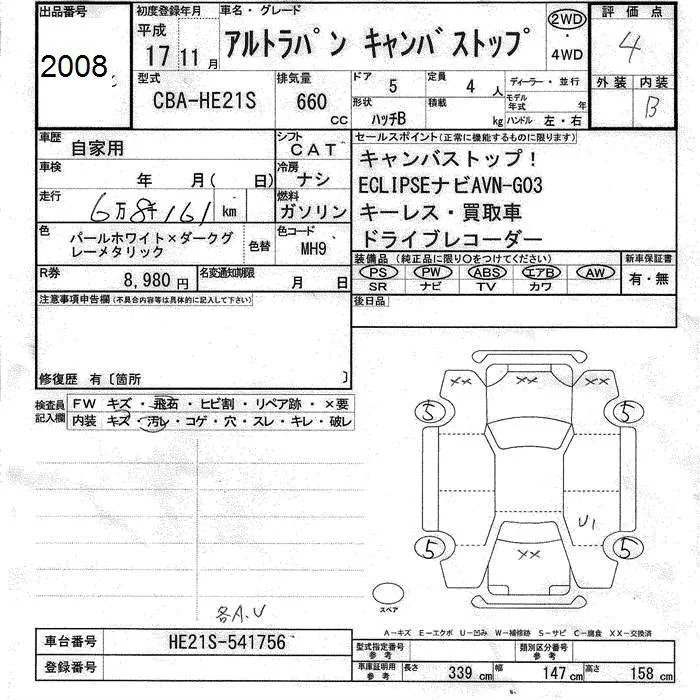 出品番号
2008
初度登録年月
平成
17年11月
車名・グレード
アルトラパン キャンバストップ
2WD
・
4WD
評価点
4
型式
CBA-HE21S
排気量
660
CC
ドア
5
定員
4人
ディーラー・並行
外装 内装
B
形状
ハッチB
積載
kg
モデル年式
年
ハンドル 左・右
車歴
自家用
シフト
CAT
セールスポイント(正常に機能するものに限ります)
キャンバストップ!
ECLIPSEナビAVN-G03
キーレス・買取車
ドライブレコーダー
車検
年 月( 日)
冷房
ナシ
走行
6万8千161km
燃料
ガソリン
色
パールホワイト×ダークグ
レーメタリック
色替
色コード
MH9
装備品(純正品に限り〇をつけてください)
新車保証書
PS PW ABS エアB AW
SR ナビ TV カワ
有・無
R券
8,980円
名変通知期限
月 日
注意事項申告欄(不具合内容等は具体的に記入して下さい)
後日品
修復歴 有〔箇所 〕
検査員記入欄
FW キズ・飛石・ヒビ割・リペア跡・×要
内装 キズ・汚レ・コゲ・穴・スレ・キレ・破レ
×× ×× ××
5 5
U1
5 5
××
各A.U
スペア
A-キズ E-エクボ U-凹み W-補修跡 S-サビ C-腐食 XX-交換済
車台番号
HE21S-541756
型式指定番号
参考
類別区分番号
参考
登録番号
車庫証明用
参考
長さ 339cm 幅 147cm 高さ 158cm